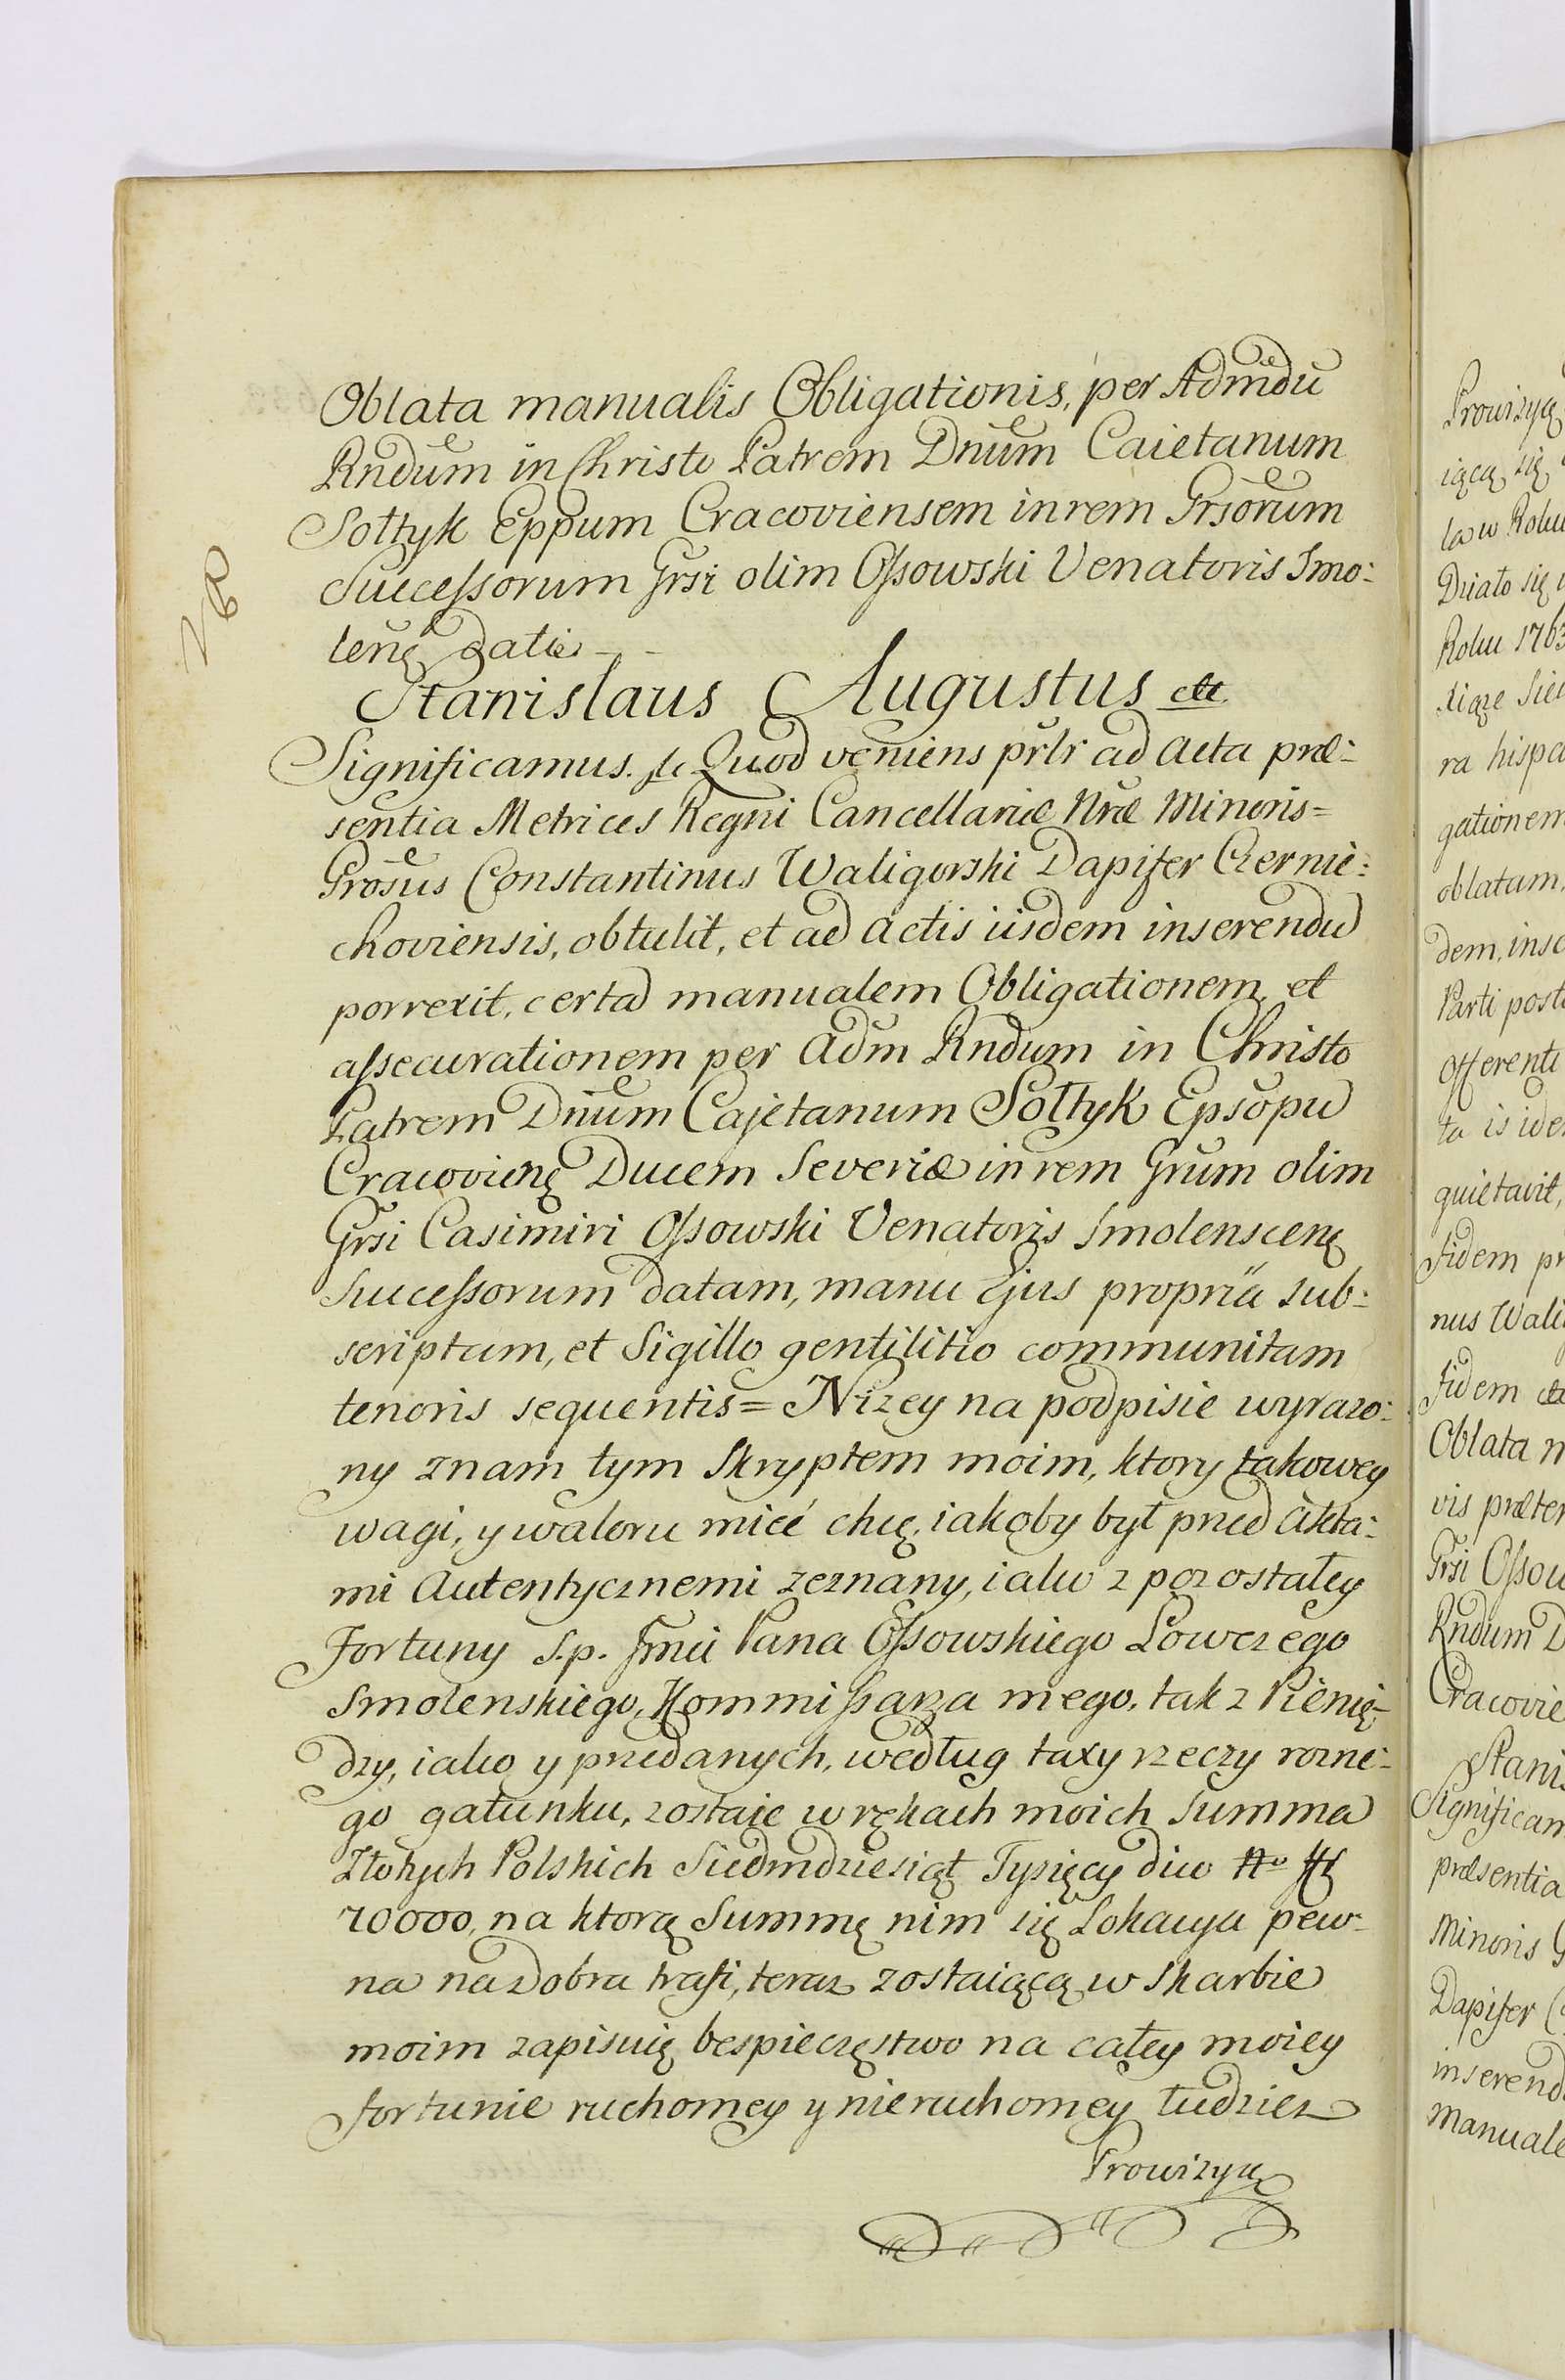 Oblata manualis Obligationis, per Admdũ
Rndum in Christo Patrem Dnum Caietanum
Sołtyk Eppum Cracoviensem in rem Grsorum
Successorum Grsi olim Ossowski Venatoris Smo:
lenę datis
Stanislaus Augustus etc
Significamus. Quod veniens prlr ad Acta præ:
sentia Metrices Regni Cancellariæ Nræ Minoris=
Grosus Constantinus Waligorski Dapifer Czernie:
choviensis, obtulit, et ad Actis iisdem inserendũ
porrexit, certã manualem Obligationem, et
assecurationem per Adm Rndum in Christo
Patrem Dnum Cajetanum Sołtyk Epsopũ
Cracovienę Ducem Severiæ in rem Grum olim
Grsi Casimiri Ossowski Venatoris Smolenscenę
Successorum datam, manu Ejus propria sub:
scriptam, et Sigillo gentilitio communitam
tenoris sequentis= Nizey na podpisie wyrazo:
ny znam tym Skryptem moim, ktory takowey
wagi, y waloru mieć chcę, iakoby był przed Akta:
mi Autentycznemi zeznany, iako z pozostałey
Fortuny S.p. Jmci Pana Ossowskiego Łowczego
Smolenskiego, Kommissarza mego, tak z Pienię:
dzy, iako y przedanych, według taxy rzeczy rozne:
go gatunku, zostaie w rękach moich Summa
Złotych Polskich Siedmdziesiąt Tysięcy dico
70000, na ktorą Summę nim się Lokacya pew:
na na Dobra trafi, teraz zostaiącą w Skarbie
moim zapisuię bespieczęstwo na całey moiey
fortunie ruchomey y nieruchomey tudziez
Prowizyą
Prowizyą
iącą się
la w Roku
Działo się
Roku 1763
ra hispa
gationem
oblatam,
dem, inse
Parti post
Offerenti
ta is ide
quietavit,
Fidem pr
nus Wali
Fidem etc
Oblata m
vis præter
Grsi Ossow
Rndum D
Cracovie
Stanis
Significam
præsentia
Minoris G
Dapifer C
inserend
Manuale